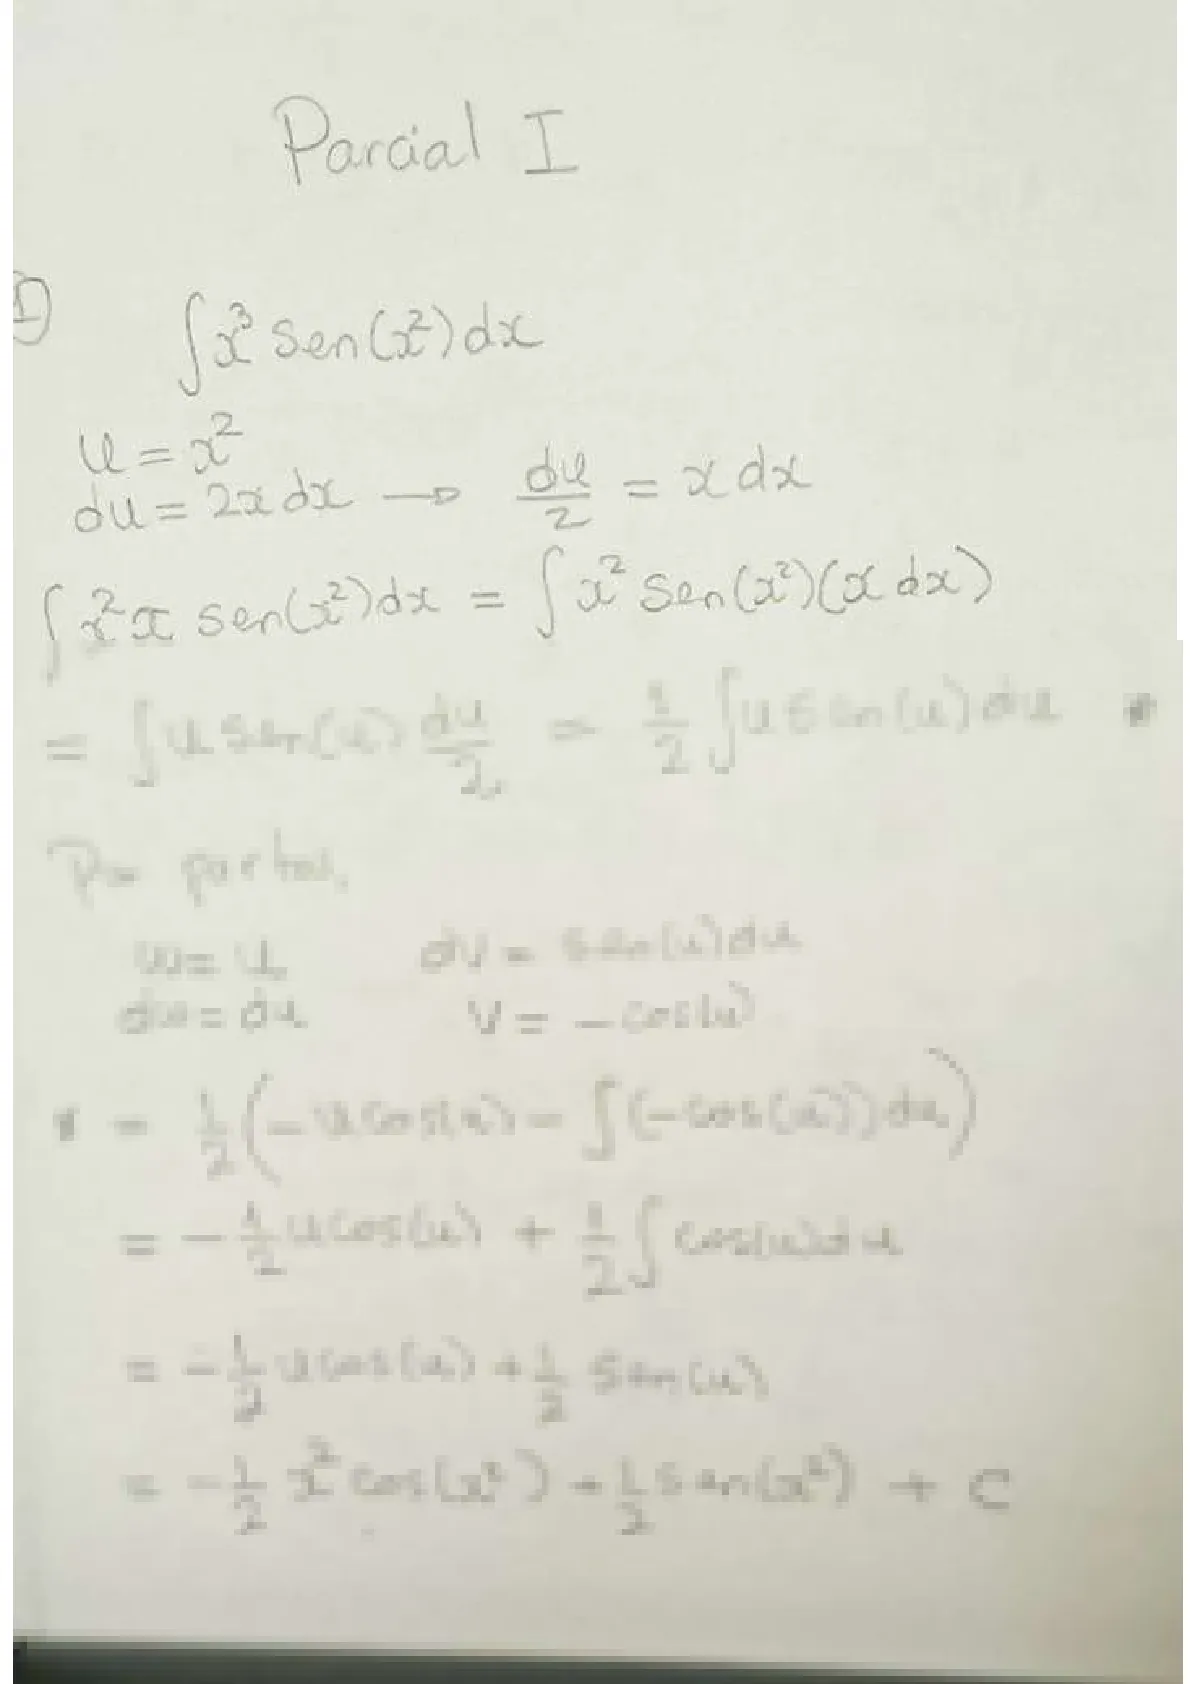 Parcial I
1)
∫x³ sen(x²)dx
u = x²
du = 2x dx → du/2 = x dx
∫x² x sen(x²)dx = ∫x² sen(x²)(x dx)
= ∫u sen(u) du/2 = 1/2 ∫u sen(u) du *
Por partes,
w = u dv = sen(u) du
dw = du v = -cos(u)
* = 1/2 (-u cos(u) - ∫(-cos(u)) du)
= -1/2 u cos(u) + 1/2 ∫cos(u) du
= -1/2 u cos(u) + 1/2 sen(u)
= -1/2 x² cos(x²) + 1/2 sen(x²) + C